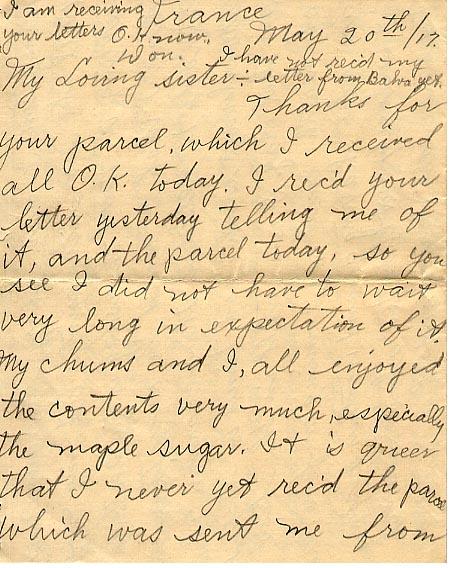 I am receiving
your letters O.K now.
Won.
France
May 20th/17.
I have not rec'd my
letter from Balva yet.
My Loving sister:-
Thanks for
your parcel, which I received
all O.K. today. I rec'd your
letter yesterday telling me of
it, and the parcel today, so you
see I did not have to wait
very long in expectation of it.
My chums and I, all enjoyed
the contents very much, especially
the maple sugar. It is queer
that I never yet rec'd the parcel
which was sent me from